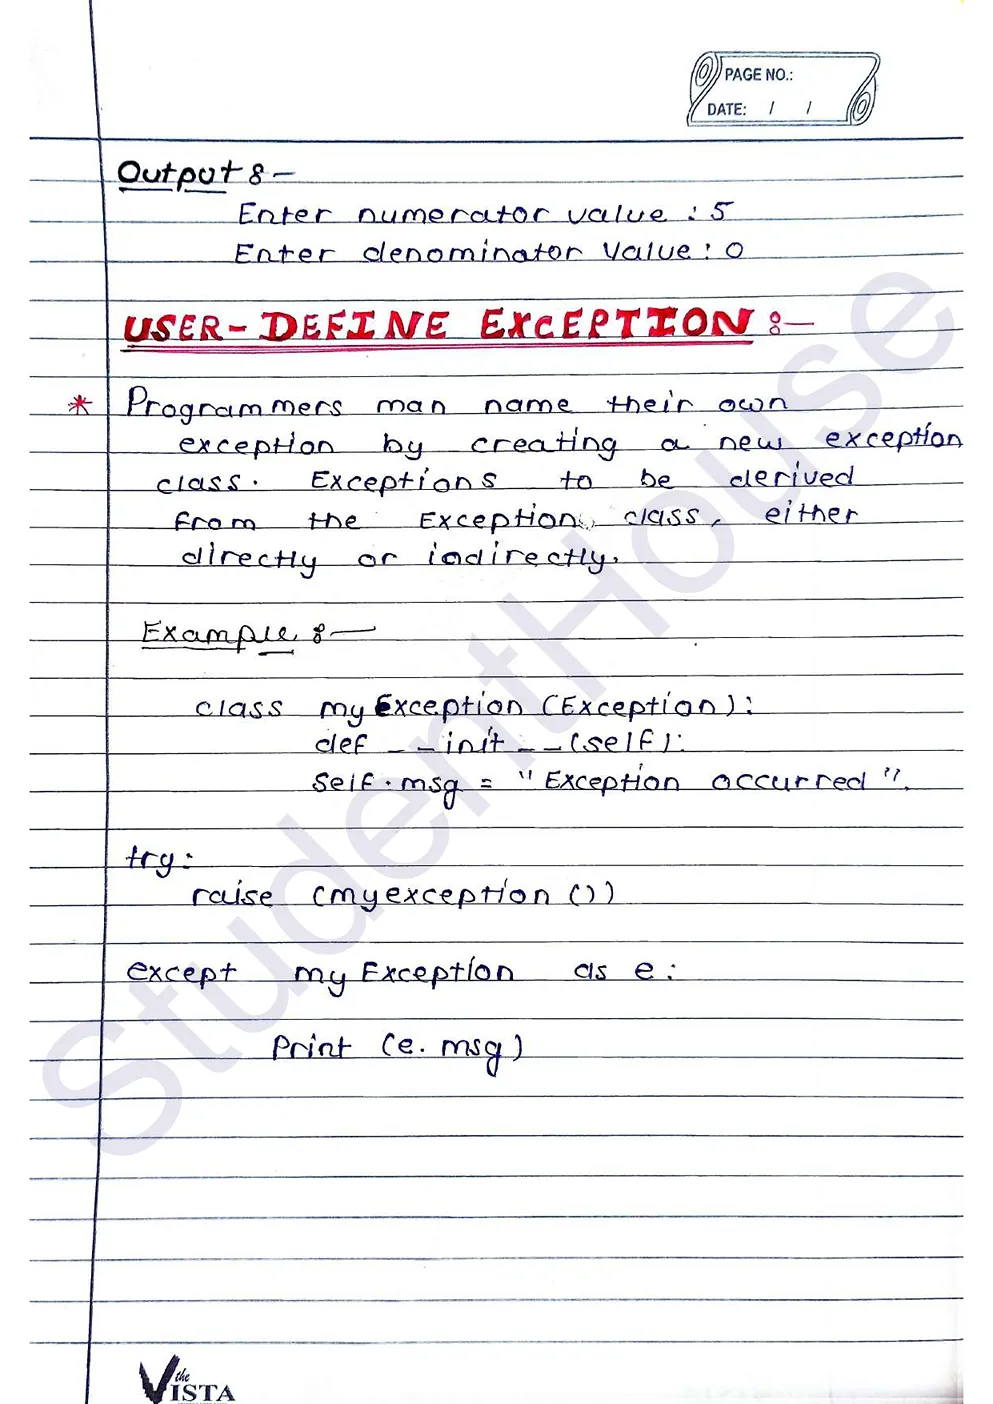 PAGE NO.:
DATE: / /
Output :-
Enter numerator value : 5
Enter denominator value : 0
USER-DEFINE EXCEPTION :-
* Programmers man name their own
exception by creating a new exception
class. Exceptions to be derived
from the Exception class, either
directly or indirectly.
Example :-
class myException (Exception):
def __init__(self):
self.msg = "Exception occurred".
try:
raise (myexception())
except myException as e:
Print (e.msg)
StudentHouse
the VISTA